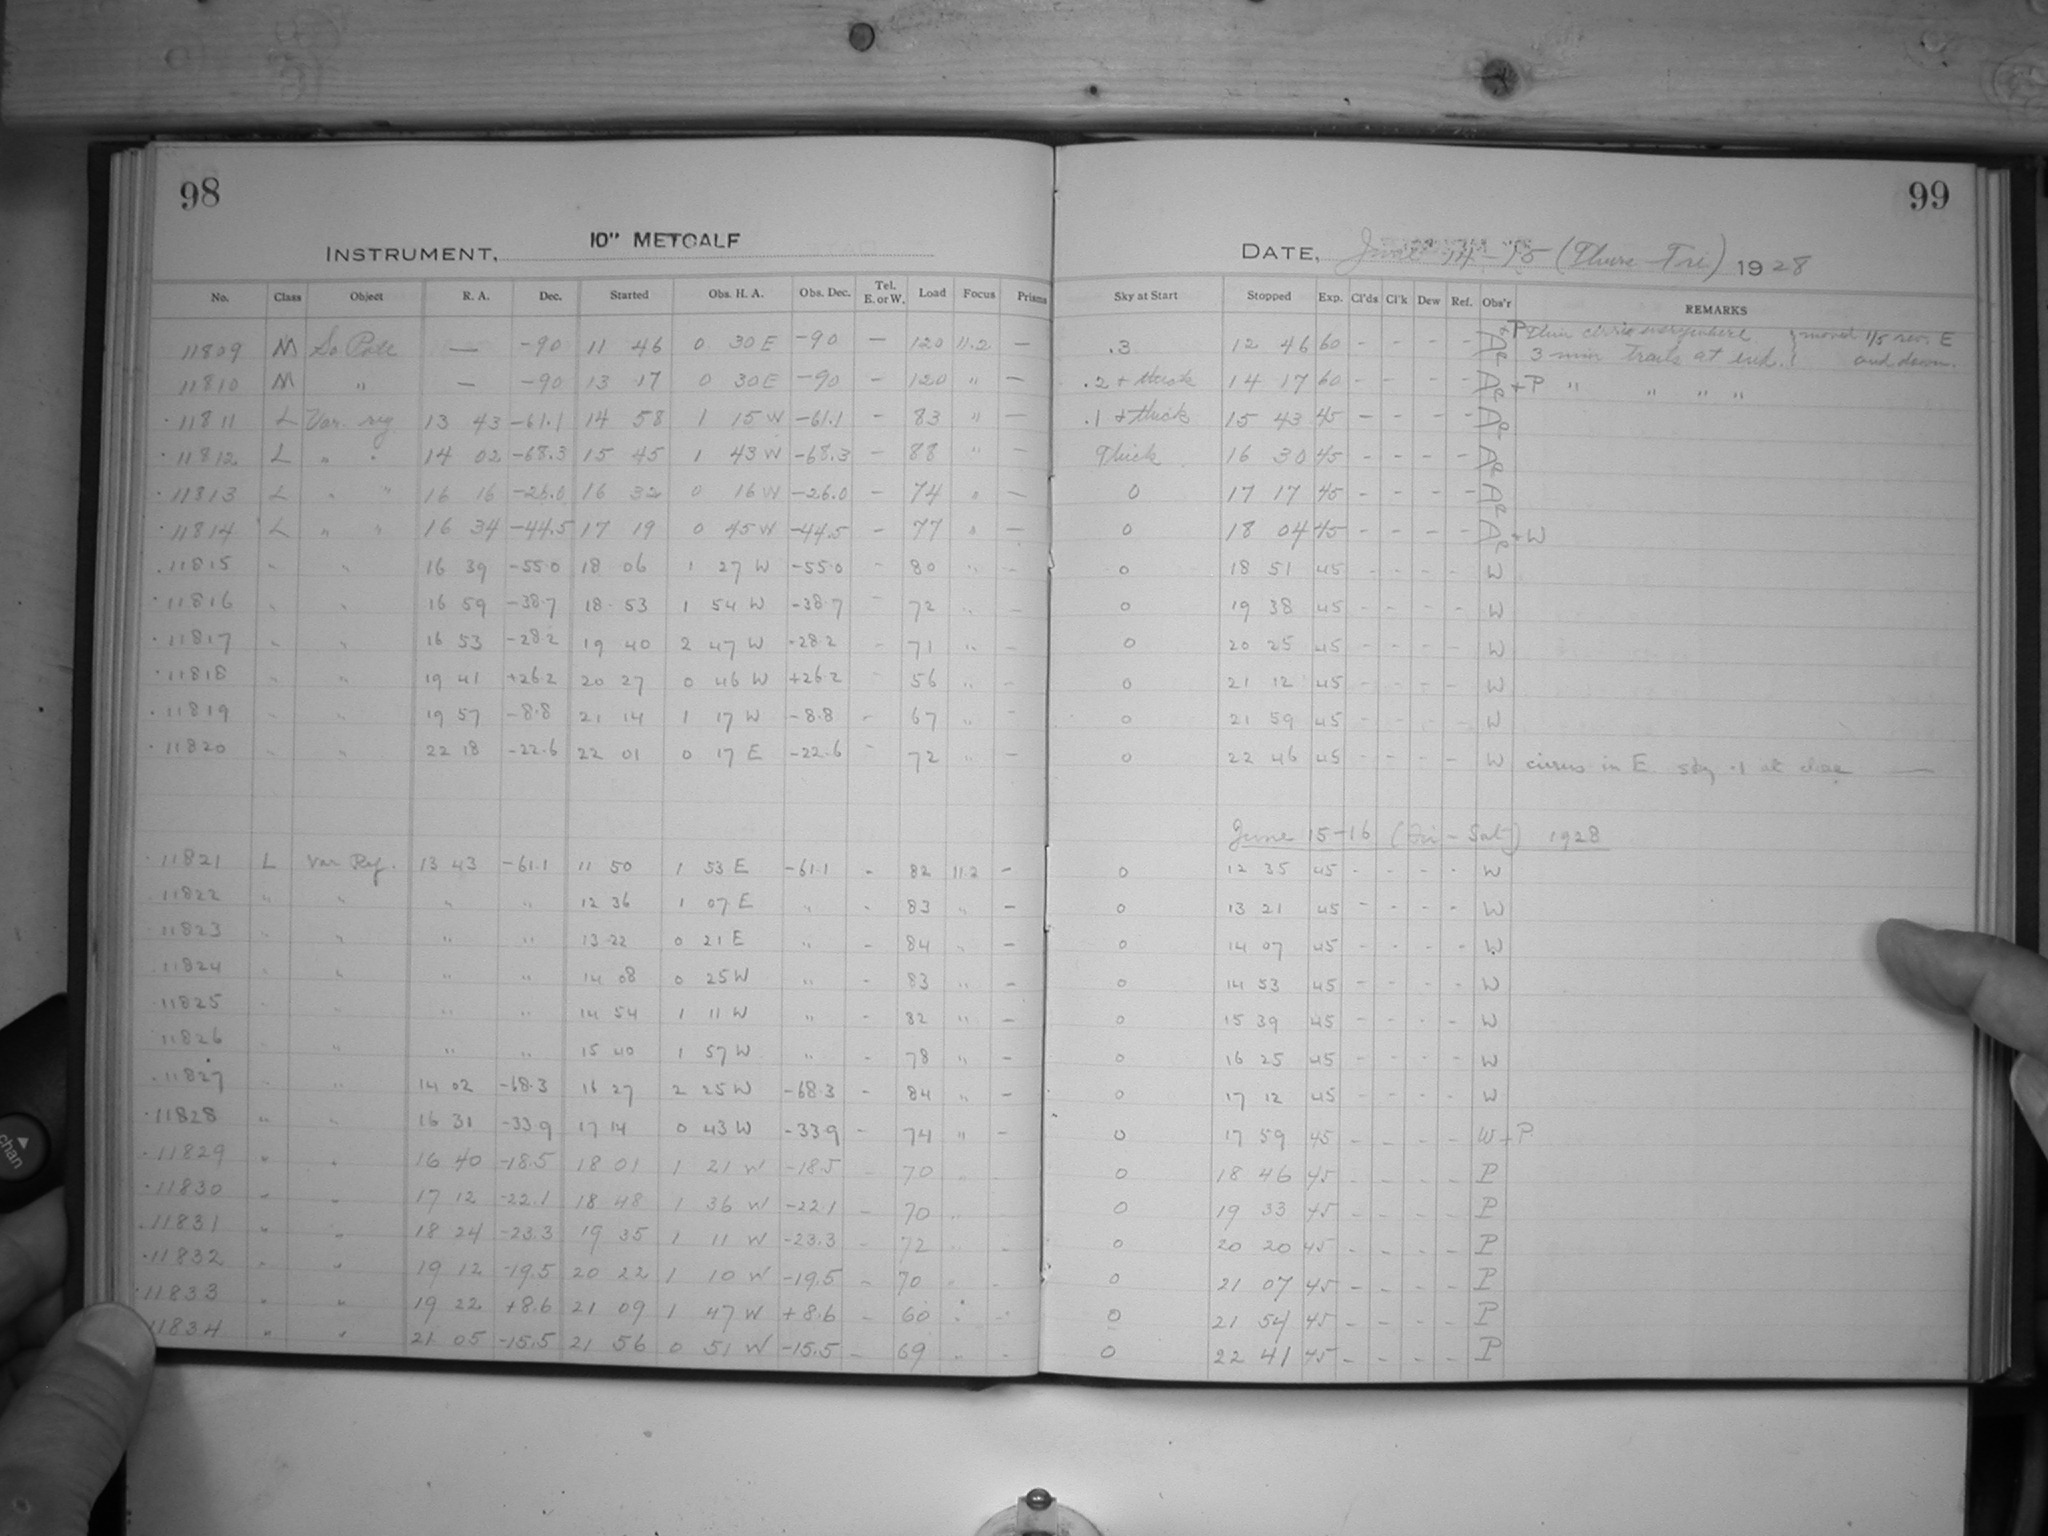 98
INSTRUMENT, 10" METCALF
No. Class Object R. A. Dec. Started Obs. H. A. Obs. Dec. Tel. E. or W. Load Focus Prisms
11809 M So Pole — -90 11 46 0 30 E -90 — 120 11.2 —
11810 M " — -90 13 17 0 30 E -90 — 120 " —
11811 L Var. reg 13 43 -61.1 14 58 1 15 W -61.1 - 83 " —
11812 L " " 14 02 -68.3 15 45 1 43 W -68.3 - 88 " —
11813 L " " 16 16 -26.0 16 32 0 16 W -26.0 - 74 " —
11814 L " " 16 34 -44.5 17 19 0 45 W -44.5 - 77 " —
11815 " " 16 39 -55.0 18 06 1 27 W -55.0 - 80 " -
11816 " " 16 59 -38.7 18 53 1 54 W -38.7 - 72 " -
11817 " " 16 53 -28.2 19 40 2 47 W -28.2 - 71 " -
11818 " " 19 41 +26.2 20 27 0 46 W +26.2 - 56 " -
11819 " " 19 57 -8.8 21 14 1 17 W -8.8 - 67 " -
11820 " " 22 18 -22.6 22 01 0 17 E -22.6 - 72 " -
11821 L Var Reg. 13 43 -61.1 11 50 1 53 E -61.1 - 82 11.2 -
11822 " " " " 12 36 1 07 E " - 83 " -
11823 " " " " 13 22 0 21 E " - 84 " -
11824 " " " " 14 08 0 25 W " - 83 " -
11825 " " " " 14 54 1 11 W " - 82 " -
11826 " " " " 15 40 1 57 W " - 78 " -
11827 " " 14 02 -68.3 16 27 2 25 W -68.3 - 84 " -
11828 " " 16 31 -33.9 17 14 0 43 W -33.9 - 74 " -
11829 " " 16 40 -18.5 18 01 1 21 W -18.5 - 70 " -
11830 " " 17 12 -22.1 18 48 1 36 W -22.1 - 70 " -
11831 " " 18 24 -23.3 19 35 1 11 W -23.3 - 72 " -
11832 " " 19 12 -19.5 20 22 1 10 W -19.5 - 70 " -
11833 " " 19 22 +8.6 21 09 1 47 W +8.6 - 60 " -
11834 " " 21 05 -15.5 21 56 0 51 W -15.5 - 69 " -
99
DATE, June 14-15 (Thurs-Fri) 1928
Sky at Start Stopped Exp. Cl'ds Cl'k Dew Ref. Obs'r REMARKS
.3 12 46 60 - - - - Ap +P Thin cirrus everywhere } moved 1/5 rev. E
3 min trails at end. } and down.
.2 + thick 14 17 60 - - - - Ap +P " " " "
.1 + thick 15 43 45 - - - - Ap
Thick 16 30 45 - - - - Ap
0 17 17 45 - - - - Ap
0 18 04 45 - - - - Ap + W
0 18 51 45 - - - - W
0 19 38 45 - - - - W
0 20 25 45 - - - - W
0 21 12 45 - - - - W
0 21 59 45 - - - - W
0 22 46 45 - - - - W cirrus in E sky .1 at close —
June 15-16 (Fri - Sat) 1928
0 12 35 45 - - - - W
0 13 21 45 - - - - W
0 14 07 45 - - - - W
0 14 53 45 - - - - W
0 15 39 45 - - - - W
0 16 25 45 - - - - W
0 17 12 45 - - - - W
0 17 59 45 - - - - W + P
0 18 46 45 - - - - P
0 19 33 45 - - - - P
0 20 20 45 - - - - P
0 21 07 45 - - - - P
0 21 54 45 - - - - P
0 22 41 45 - - - - P
chan